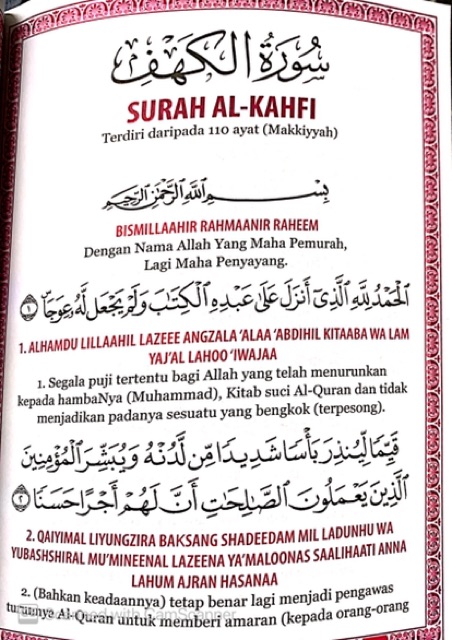 سُورَةُ الكَهْفِ
SURAH AL-KAHFI
Terdiri daripada 110 ayat (Makkiyyah)
بِسْمِ اللَّهِ الرَّحْمَٰنِ الرَّحِيمِ
BISMILLAAHIR RAHMAANIR RAHEEM
Dengan Nama Allah Yang Maha Pemurah,
Lagi Maha Penyayang.
الْحَمْدُ لِلَّهِ الَّذِي أَنْزَلَ عَلَىٰ عَبْدِهِ الْكِتَابَ وَلَمْ يَجْعَلْ لَهُ عِوَجًا ١
1. ALHAMDU LILLAAHIL LAZEEE ANGZALA 'ALAA 'ABDIHIL KITAABA WA LAM
YAJ'AL LAHOO 'IWAJAA
1. Segala puji tertentu bagi Allah yang telah menurunkan
kepada hambaNya (Muhammad), Kitab suci Al-Quran dan tidak
menjadikan padanya sesuatu yang bengkok (terpesong).
قَيِّمًا لِيُنْذِرَ بَأْسًا شَدِيدًا مِنْ لَدُنْهُ وَيُبَشِّرَ الْمُؤْمِنِينَ
الَّذِينَ يَعْمَلُونَ الصَّالِحَاتِ أَنَّ لَهُمْ أَجْرًا حَسَنًا ٢
2. QAIYIMAL LIYUNGZIRA BAKSANG SHADEEDAM MIL LADUNHU WA
YUBASHSHIRAL MU'MINEENAL LAZEENA YA'MALOONAS SAALIHAATI ANNA
LAHUM AJRAN HASANAA
2. (Bahkan keadaannya) tetap benar lagi menjadi pengawas
turunnya Al-Quran untuk memberi amaran (kepada orang-orang
Scanned with CamScanner